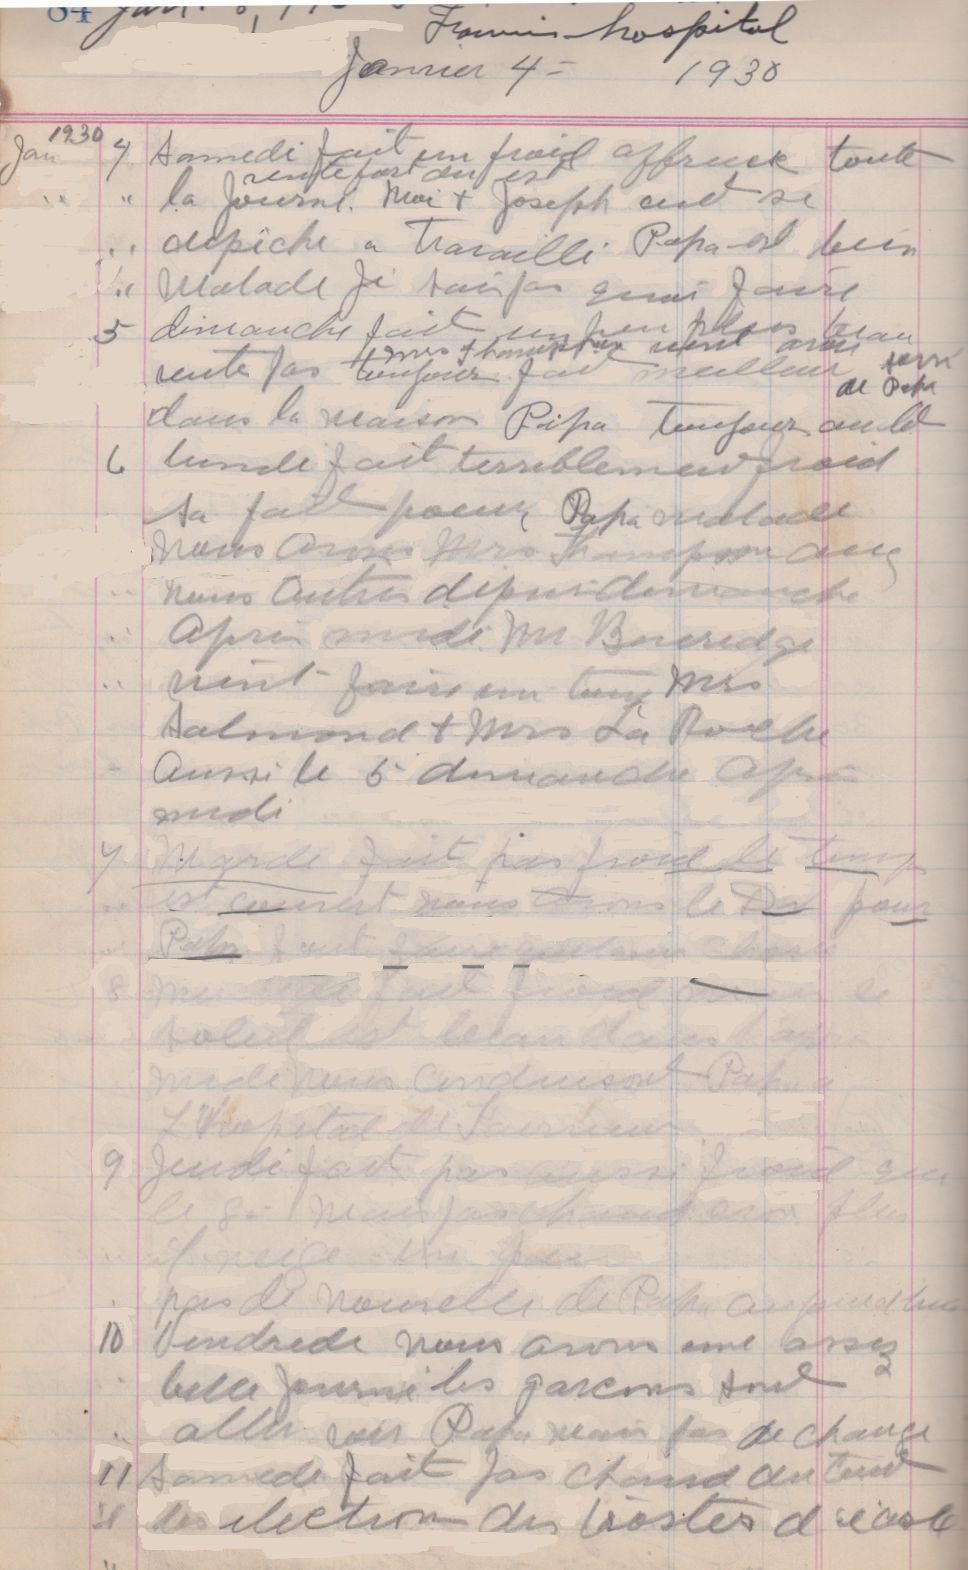 84 Jan. 8, 19
hospital
Janvier 4 = 1930
1930
Jan 4 Samedi fait un froid affreuse toute
vente fort du est
" " la Journe. Moi + Joseph aut se
" depiche a Travailli Papa est bein
" Malade Je sais pas quoi faire
5 dimanche fait un peu plus beau
Mrs Thompson vient avou
vente pas toujour fait meilleur
de Papa
dans la maison Papa toujour au lit
6 lundi fait terriblement froid
sa fait poeur, Papa malade
nous avons Mrs Thompson avec
nous autres depui dimanche
Apres midi Mr Boveredge
vient faire un tour Mrs
Salmond + Mrs La Roche
Aussi le 5 dimanche apres
midi
7 Mardi fait pas froid le temp
est couvert nous avons le Dr pour
Papa faut faire quelque chose
8 Mercredi fait froid mais le
soleil est beau dans l'apre
midi nous conduisont Papa a
L'Hopital de
9 Jeudi fait pas aussi froid que
le 8 - Mais pas chaud non plus
il neige un peu
pas de nouvelle de Papa aujourd'hui
10 Vendrede nous avons une assez
belle journe les garcons sont
aller voir Papa mais pas de change
11 Samedi fait pas chaud du tout
" les election des trostes d'ecole